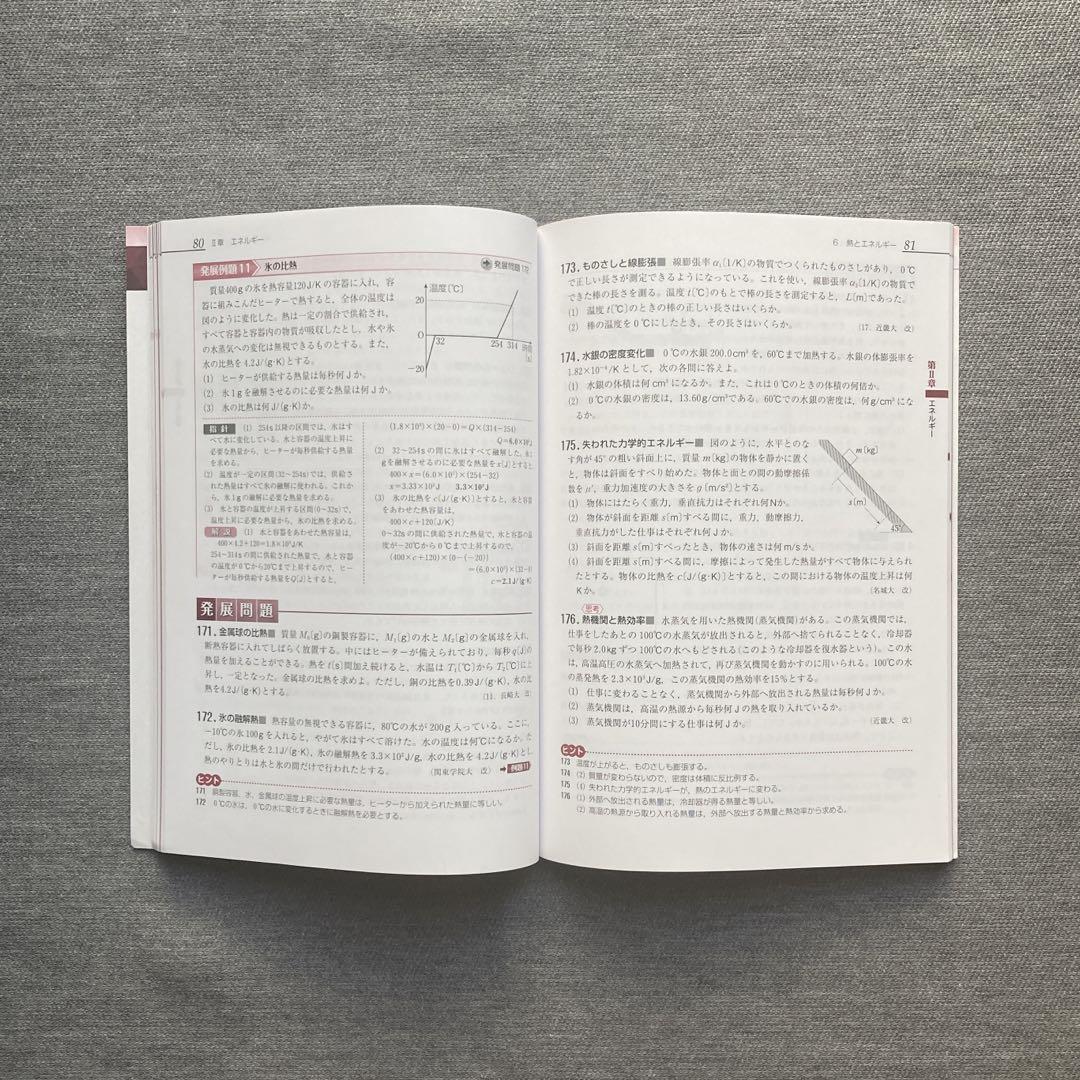 80 Ⅱ章 エネルギー
発展例題11 氷の比熱
➡発展問題 172
質量400gの氷を熱容量120J/Kの容器に入れ、容
器に組みこんだヒーターで熱すると、全体の温度は
図のように変化した。熱は一定の割合で供給され、
すべて容器と容器内の物質が吸収したとし、水や氷
の水蒸気への変化は無視できるものとする。また、
水の比熱を4.2J/(g·K)とする。
(1) ヒーターが供給する熱量は毎秒何Jか。
(2) 氷1gを融解させるのに必要な熱量は何Jか。
(3) 氷の比熱は何J/(g·K)か。
温度[℃]
20
0
32
254 314
−20
指針 (1) 254s以降の区間では、氷はす
べて水に変化している。水と容器の温度上昇に
必要な熱量から、ヒーターが毎秒供給する熱量
を求める。
(2) 温度が一定の区間(32~254s)では、供給さ
れた熱量はすべて氷の融解に使われる。これか
ら、氷1gの融解に必要な熱量を求める。
(3) 氷と容器の温度が上昇する区間(0~32s)で、
温度上昇に必要な熱量から、氷の比熱を求める。
解説 (1) 水と容器をあわせた熱容量は、
400×4.2+120=1.8×10³J/K
254~314sの間に供給された熱量で、水と容器
の温度が0℃から20℃まで上昇するので、ヒー
ターが毎秒供給する熱量をQ[J]とすると、
(1.8×10³)×(20−0)=Q×(314−254)
Q=6.0×10²J
(2) 32~254sの間に氷はすべて融解した。氷1
gを融解させるのに必要な熱量をx[J]とすると、
400×x=(6.0×10²)×(254−32)
x=3.33×10²J 3.3×10²J
(3) 氷の比熱をc[J/(g·K)]とすると、氷と容器
をあわせた熱容量は、
400×c+120[J/K]
0~32sの間に供給された熱量で、氷と容器の温
度が−20℃から0℃まで上昇するので、
(400×c+120)×{0−(−20)}
=(6.0×10²)×(32−0)
c=2.1J/(g·K)
発展問題
171. 金属球の比熱■ 質量M₁[g]の銅製容器に、M₁[g]の水とM₂[g]の金属球を入れ、
断熱容器に入れてしばらく放置する。中にはヒーターが備えられており、毎秒q[J]の
熱量を加えることができる。熱をt[s]間加え続けると、水温はT₁[℃]からT₂[℃]に上
昇し、一定となった。金属球の比熱を求めよ。ただし、銅の比熱を0.39J/(g·K)、水の比
熱を4.2J/(g·K)とする。
(11. 長崎大 改)
172. 氷の融解熱■ 熱容量の無視できる容器に、80℃の水が200g入っている。ここに、
−10℃の氷100gを入れると、やがて氷はすべて溶けた。水の温度は何℃になるか。た
だし、氷の比熱を2.1J/(g·K)、氷の融解熱を3.3×10²J/g、水の比熱を4.2J/(g·K)とし、
熱のやりとりは水と氷の間だけで行われたとする。
(関東学院大 改) ➡例題11
ヒント
171 銅製容器、水、金属球の温度上昇に必要な熱量は、ヒーターから加えられた熱量に等しい。
172 0℃の氷は、0℃の水に変化するときに融解熱を必要とする。
6 熱とエネルギー 81
173. ものさしと線膨張■ 線膨張率α₁[1/K]の物質でつくられたものさしがあり、0℃
で正しい長さが測定できるようになっている。これを使い、線膨張率α₂[1/K]の物質で
できた棒の長さを測る。温度t[℃]のもとで棒の長さを測定すると、L[m]であった。
(1) 温度t[℃]のときの棒の正しい長さはいくらか。
(2) 棒の温度を0℃にしたとき、その長さはいくらか。
(17. 近畿大 改)
174. 水銀の密度変化■ 0℃の水銀200.0cm³を、60℃まで加熱する。水銀の体膨張率を
1.82×10⁻⁴/Kとして、次の各問に答えよ。
(1) 水銀の体積は何cm³になるか。また、これは0℃のときの体積の何倍か。
(2) 0℃の水銀の密度は、13.60g/cm³である。60℃での水銀の密度は、何g/cm³にな
るか。
175. 失われた力学的エネルギー■ 図のように、水平とのな
す角が45°の粗い斜面上に、質量m[kg]の物体を静かに置く
と、物体は斜面をすべり始めた。物体と面との間の動摩擦係
数をμ′、重力加速度の大きさをg[m/s²]とする。
(1) 物体にはたらく重力、垂直抗力はそれぞれ何Nか。
(2) 物体が斜面を距離s[m]すべる間に、重力、動摩擦力、
垂直抗力がした仕事はそれぞれ何Jか。
(3) 斜面を距離s[m]すべったとき、物体の速さは何m/sか。
(4) 斜面を距離s[m]すべる間に、摩擦によって発生した熱量がすべて物体に与えられ
たとする。物体の比熱をc[J/(g·K)]とすると、この間における物体の温度上昇は何
Kか。
(名城大 改)
m[kg]
s[m]
45°
思考
176. 熱機関と熱効率■ 水蒸気を用いた熱機関(蒸気機関)がある。この蒸気機関では、
仕事をしたあとの100℃の水蒸気が放出されると、外部へ捨てられることなく、冷却器
で毎秒2.0kgずつ100℃の水へもどされる(このような冷却器を復水器という)。この水
は、高温高圧の水蒸気へ加熱されて、再び蒸気機関を動かすのに用いられる。100℃の水
の蒸発熱を2.3×10³J/g、この蒸気機関の熱効率を15%とする。
(1) 仕事に変わることなく、蒸気機関から外部へ放出される熱量は毎秒何Jか。
(2) 蒸気機関は、高温の熱源から毎秒何Jの熱を取り入れているか。
(3) 蒸気機関が10分間にする仕事は何Jか。
(近畿大 改)
ヒント
173 温度が上がると、ものさしも膨張する。
174 (2) 質量が変わらないので、密度は体積に反比例する。
175 (4) 失われた力学的エネルギーが、熱のエネルギーに変わる。
176 (1) 外部へ放出される熱量は、冷却器が得る熱量と等しい。
(2) 高温の熱源から取り入れる熱量は、外部へ放出する熱量と熱効率から求める。
第Ⅱ章 エネルギー